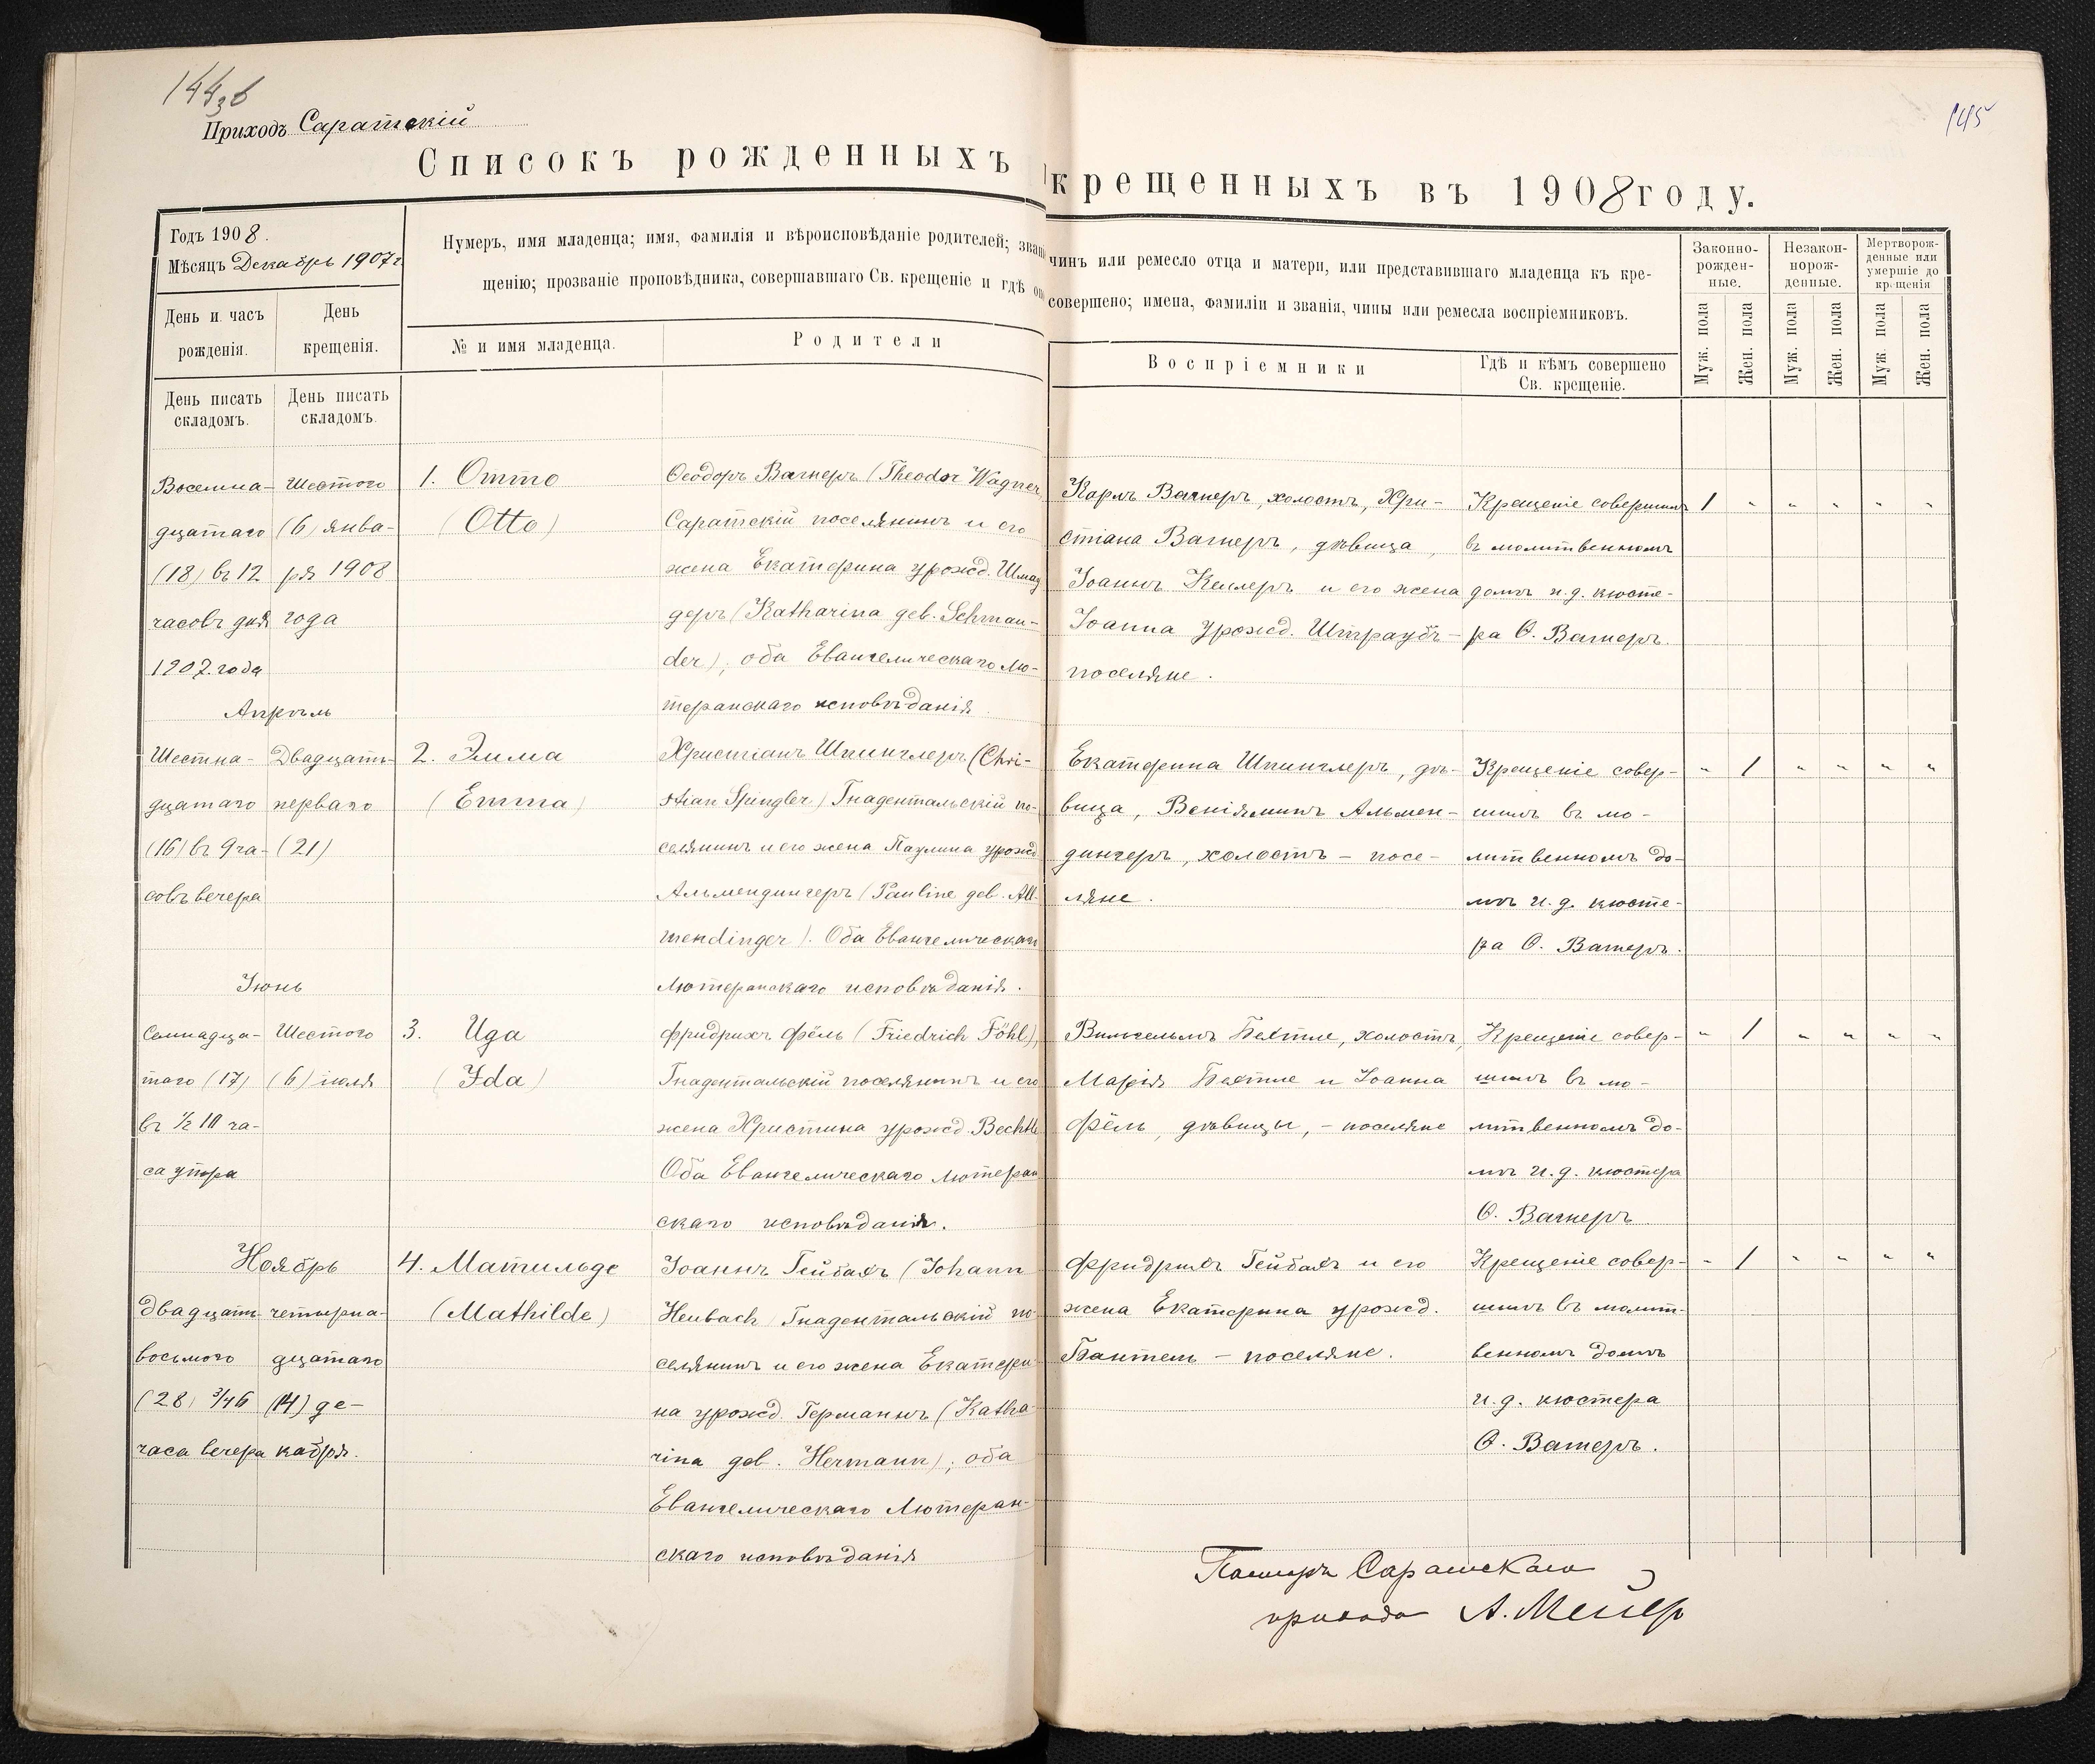 144
зв
145
Приходъ Саратскій
Списокъ рожденныхъ
крещенныхъ въ 1908 году.
Годъ 1908.
Мѣсяцъ Декабрь 1907 г.
День и часъ
рожденія.
День
крещенія.
День писать
складомъ.
День писать
складомъ.
Нумеръ, имя младенца; имя, фамилія и вѣроисповѣданіе родителей; зван
щенію; прозваніе проповѣдника, совершавшаго Св. крещеніе и гдѣ он
№ и имя младенца.
Родители
чинъ или ремесло отца и матери, или представившаго младенца къ кре-
совершено; имена, фамиліи и званія, чины или ремесла воспріемниковъ.
Воспріемники
Гдѣ и кѣмъ совершено
Св. крещеніе.
Законно-
рожден-
ные.
Незакон-
норож-
денные.
Мертворож-
денные или
умершіе до
крещенія
Муж. пола
Жен. пола
Муж. пола
Жен. пола
Муж. пола
Жен. пола
Восемна-
дцатаго
(18) въ 12
часовъ дня
1907. года
Шестого
(6) янва-
ря 1908
года
1. Отто
(Otto)
Ѳеодоръ Вагнеръ (Theodor Wagner
Саратскій поселянинъ и его
жена Екатерина урожд. Шман
деръ (Katharina geb. Schman-
der), оба Евангелическаго Лю-
теранскаго исповѣданія
Карлъ Вагнеръ, холостъ, Хри-
стіана Вагнеръ, дѣвица,
Іоаннъ Келлеръ и его жена
Іоанна урожд. Штраубъ -
поселяне.
Крещеніе совершилъ
въ молитвенномъ
домѣ и.д. кюсте-
ра Ѳ. Вагнеръ.
1 " " " " "
Апрѣль
Шестна-
дцатаго
(16) въ 9 ча-
совъ вечера
Двадцать
перваго
(21)
2. Эмма
(Emma)
Христіанъ Шпинглеръ (Chri-
stian Spingler) Гнадентальскій по-
селянинъ и его жена Паулина урожд
Альмендингеръ (Pauline geb. All-
mendinger). Оба Евангелическаго
Лютеранскаго исповѣданія.
Екатерина Шпинглеръ, дѣ-
вица, Веніяминъ Альмен-
дингеръ, холостъ - посе-
ляне.
Крещеніе совер-
шилъ въ мо-
литвенномъ до-
мѣ и.д. кюсте-
ра Ѳ. Вагнеръ.
" 1 " " " "
Іюнь
Семнадца-
таго (17)
въ ½ 10 ча-
са утра
Шестого
(6) іюля
3. Ида
(Ida)
Фридрихъ Фёль (Friedrich Föhl),
Гнадентальскій поселянинъ и его
жена Христина урожд. Bechtle
Оба Евангелическаго Лютеран
скаго исповѣданія.
Вильгельмъ Бехтле, холостъ,
Марія Бехтле и Іоанна
Фёль, дѣвицы, - поселяне
Крещеніе совер-
шилъ въ мо-
литвенномъ до-
мѣ и.д. кюстера
Ѳ. Вагнеръ
" 1 " " " "
Ноябрь
Двадцать
восьмого
(28) ¾ 6
часа вечера
четырна-
дцатаго
(14) де-
кабря.
4. Матильде
(Mathilde)
Іоаннъ Гейбахъ (Johann
Heubach) Гнадентальскій по-
селянинъ и его жена Екатери-
на урожд. Германнъ (Katha-
rina geb. Hermann); оба
Евангелическаго Лютеран-
скаго исповѣданія
Фридрихъ Гейбахъ и его
жена Екатерина урожд.
Бантель - поселяне.
Крещеніе совер-
шилъ въ молит-
венномъ домѣ
и.д. кюстера
Ѳ. Вагнеръ.
" 1 " " " "
Пасторъ Саратскаго
прихода А. Мейеръ